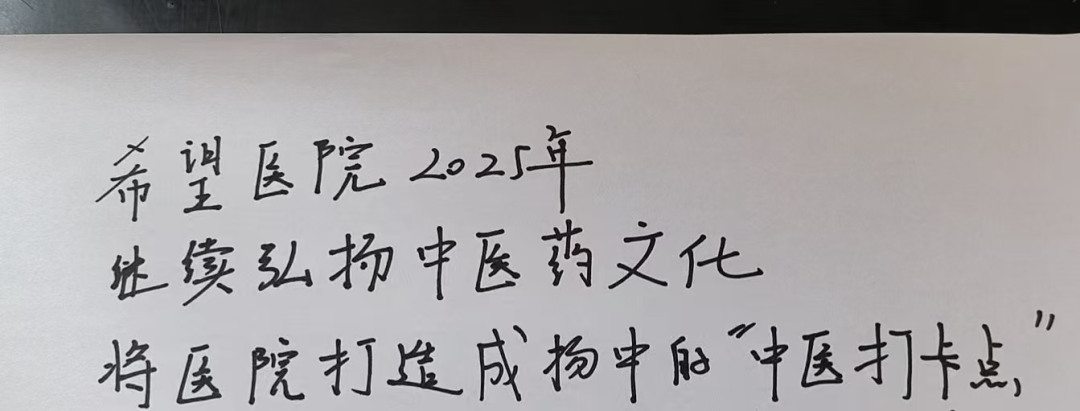 希望医院2025年
继续弘扬中医药文化
将医院打造成扬中的“中医打卡点，”